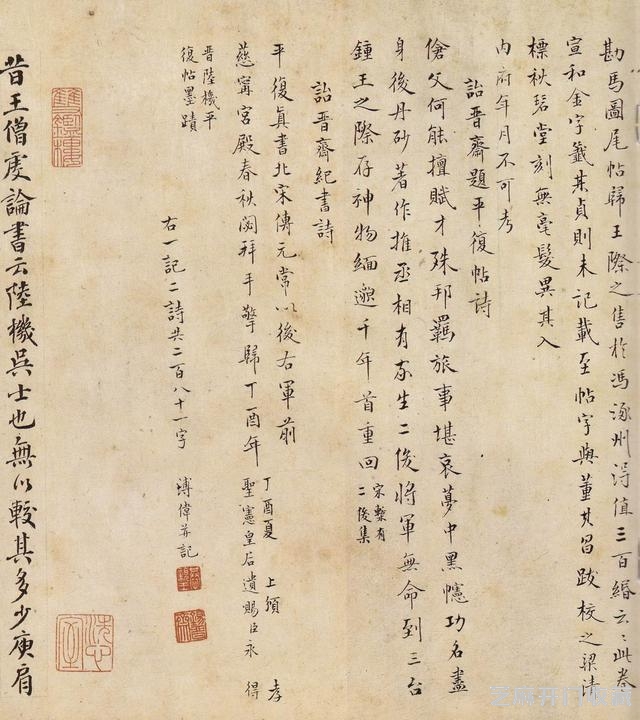 勘馬圖尾帖歸王際之售於馮涿州得值三百緡云云此卷
宣和金字籤其貞則未記載至帖字與董其昌跋校之梁清
標秋碧堂刻無毫髮異其入
內府年月不可考
詒晉齋題平復帖詩
傖父何能擅賦才殊邦羈旅事堪哀夢中黑幰功名盡
身後丹砂著作推丞相有家生二俊將軍無命到三台
鍾王之際存神物緬邈千年首重回宋槧有二俊集
詒晉齋紀書詩
平復真書北宋傳元常以後右軍前
慈甯宮殿春秋閟拜手擎歸丁酉年丁酉夏上頒孝聖憲皇后遺賜臣永得
晉陸機平復帖墨蹟
右一記二詩共二百八十一字
溥偉并記
昔王僧虔論書云陸機吳士也無以較其多少庾肩